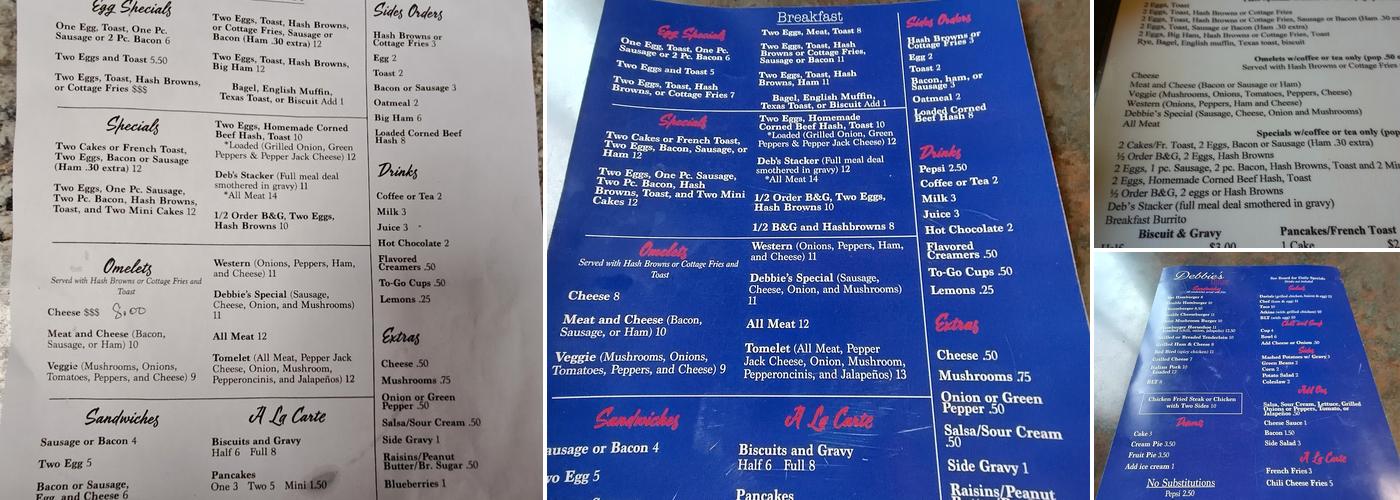 Egg Specials
One Egg, Toast, One Pc.
Sausage or 2 Pc. Bacon 6
Two Eggs and Toast 5.50
Two Eggs, Toast, Hash Browns,
or Cottage Fries $$$
Two Eggs, Toast, Hash Browns,
or Cottage Fries, Sausage or
Bacon (Ham .30 extra) 12
Two Eggs, Toast, Hash Browns,
Big Ham 12
Bagel, English Muffin,
Texas Toast, or Biscuit Add 1
Specials
Two Cakes or French Toast,
Two Eggs, Bacon or Sausage
(Ham .30 extra) 12
Two Eggs, One Pc. Sausage,
Two Pc. Bacon, Hash Browns,
Toast, and Two Mini Cakes 12
Two Eggs, Homemade Corned
Beef Hash, Toast 10
*Loaded (Grilled Onion, Green
Peppers & Pepper Jack Cheese) 12
Deb's Stacker (Full meal deal
smothered in gravy) 11
*All Meat 14
1/2 Order B&G, Two Eggs,
Hash Browns 10
Omelets
Served with Hash Browns or Cottage Fries and
Toast
Cheese $$$ 8.00
Meat and Cheese (Bacon,
Sausage, or Ham) 10
Veggie (Mushrooms, Onions,
Tomatoes, Peppers, and Cheese) 9
Western (Onions, Peppers, Ham,
and Cheese) 11
Debbie's Special (Sausage,
Cheese, Onion, and Mushrooms)
11
All Meat 12
Tomelet (All Meat, Pepper Jack
Cheese, Onion, Mushroom,
Pepperoncinis, and Jalapeños) 12
Sandwiches
Sausage or Bacon 4
Two Egg 5
Bacon or Sausage,
Egg, and Cheese 6
A La Carte
Biscuits and Gravy
Half 6 Full 8
Pancakes
One 3 Two 5 Mini 1.50
Sides Orders
Hash Browns or
Cottage Fries 3
Egg 2
Toast 2
Bacon or Sausage 3
Oatmeal 2
Big Ham 6
Loaded Corned Beef
Hash 8
Drinks
Coffee or Tea 2
Milk 3
Juice 3
Hot Chocolate 2
Flavored
Creamers .50
To-Go Cups .50
Lemons .25
Extras
Cheese .50
Mushrooms .75
Onion or Green
Pepper .50
Salsa/Sour Cream .50
Side Gravy 1
Raisins/Peanut
Butter/Br. Sugar .50
Blueberries 1
Breakfast
Egg Specials
One Egg, Toast, One Pc.
Sausage or 2 Pc. Bacon 6
Two Eggs and Toast 5
Two Eggs, Toast, Hash
Browns, or Cottage Fries 7
Two Eggs, Meat, Toast 8
Two Eggs, Toast, Hash
Browns or Cottage Fries,
Sausage or Bacon 11
Two Eggs, Toast, Hash
Browns, Ham 11
Bagel, English Muffin,
Texas Toast, or Biscuit Add 1
Specials
Two Cakes or French Toast,
Two Eggs, Bacon, Sausage, or
Ham 12
Two Eggs, One Pc. Sausage,
Two Pc. Bacon, Hash
Browns, Toast, and Two Mini
Cakes 12
Two Eggs, Homemade
Corned Beef Hash, Toast 10
*Loaded (Grilled Onion, Green
Peppers & Pepper Jack Cheese) 12
Deb's Stacker (Full meal deal
smothered in gravy) 12
*All Meat 14
1/2 Order B&G, Two Eggs,
Hash Browns 10
1/2 B&G and Hashbrowns 8
Omelets
Served with Hash Browns or Cottage Fries and
Toast
Cheese 8
Meat and Cheese (Bacon,
Sausage, or Ham) 10
Veggie (Mushrooms, Onions,
Tomatoes, Peppers, and Cheese) 9
Western (Onions, Peppers, Ham,
and Cheese) 11
Debbie's Special (Sausage,
Cheese, Onion, and Mushrooms)
11
All Meat 12
Tomelet (All Meat, Pepper
Jack Cheese, Onion, Mushroom,
Pepperoncinis, and Jalapeños) 13
Sandwiches
ausage or Bacon 4
wo Egg 5
A La Carte
Biscuits and Gravy
Half 6 Full 8
Pancakes
Sides Orders
Hash Browns or
Cottage Fries 3
Egg 2
Toast 2
Bacon, ham, or
Sausage 3
Oatmeal 2
Loaded Corned
Beef Hash 8
Drinks
Pepsi 2.50
Coffee or Tea 2
Milk 3
Juice 3
Hot Chocolate 2
Flavored
Creamers .50
To-Go Cups .50
Lemons .25
Extras
Cheese .50
Mushrooms .75
Onion or Green
Pepper .50
Salsa/Sour Cream
.50
Side Gravy 1
Raisins/Peanut
2 Eggs, Toast
2 Eggs, Hash Browns or Cottage Fries
2 Eggs, Toast, Hash Browns or Cottage Fries, Sausage or Bacon (Ham .30 ex
2 Eggs, Toast, Sausage or Bacon (Ham .30 extra)
2 Eggs, Big Ham, Hash Browns or Cottage Fries, Toast
Rye, Bagel, English muffin, Texas toast, biscuit
Omelets w/coffee or tea only (pop .50 e
Served with Hash Browns or Cottage Fries
Cheese
Meat and Cheese (Bacon or Sausage or Ham)
Veggie (Mushrooms, Onions, Tomatoes, Peppers, Cheese)
Western (Onions, Peppers, Ham and Cheese)
Debbie's Special (Sausage, Cheese, Onion and Mushrooms)
All Meat
Specials w/coffee or tea only (pop
2 Cakes/Fr. Toast, 2 Eggs, Bacon or Sausage (Ham .30 extra)
½ Order B&G, 2 Eggs, Hash Browns
2 Eggs, 1 pc. Sausage, 2 pc. Bacon, Hash Browns, Toast and 2 Min
2 Eggs, Homemade Corned Beef Hash, Toast
½ Order B&G, 2 eggs or Hash Browns
Deb's Stacker (full meal deal smothered in gravy)
Breakfast Burrito
Biscuit & Gravy
Pancakes/French Toast
Half
$3.00
1 Cake
Debbie's
Sandwiches
Grilled Ham & Cheese 8
Grilled Cheese 7
Italian Pork 10
Loaded 12
BLT 8
Chicken Fried Steak or Chicken
with Two Sides 10
Desserts
Cake 3
Cream Pie 3.50
Fruit Pie 3.50
Add ice cream 1
No Substitutions
Pepsi 2.50
See Board for Daily Specials
Salads
Taco 10
Chili and Soup
Cup 4
Add Cheese or Onion .50
Sides
Mashed Potatoes w/ Gravy 3
Green Beans 2
Corn 2
Potato Salad 2
Coleslaw 2
Add Ons
Salsa, Sour Cream, Lettuce, Grilled
Onions or Peppers, Tomato, or
Jalapenos .50
Cheese Sauce 1
Bacon 1.50
Side Salad 3
A La Carte
French Fries 3
Chili Cheese Fries 5